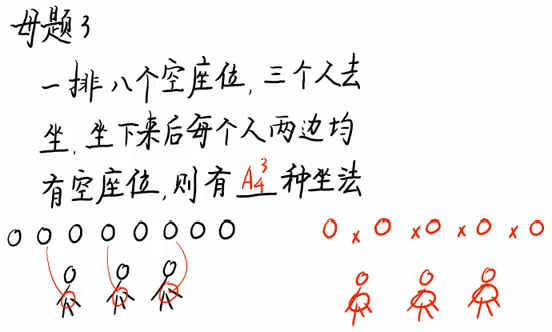 母题3
一排八个空座位,三个人去
坐,坐下来后每个人两边均
有空座位,则有A₄³种坐法
O O O O O O O O
O x O x O x O x O